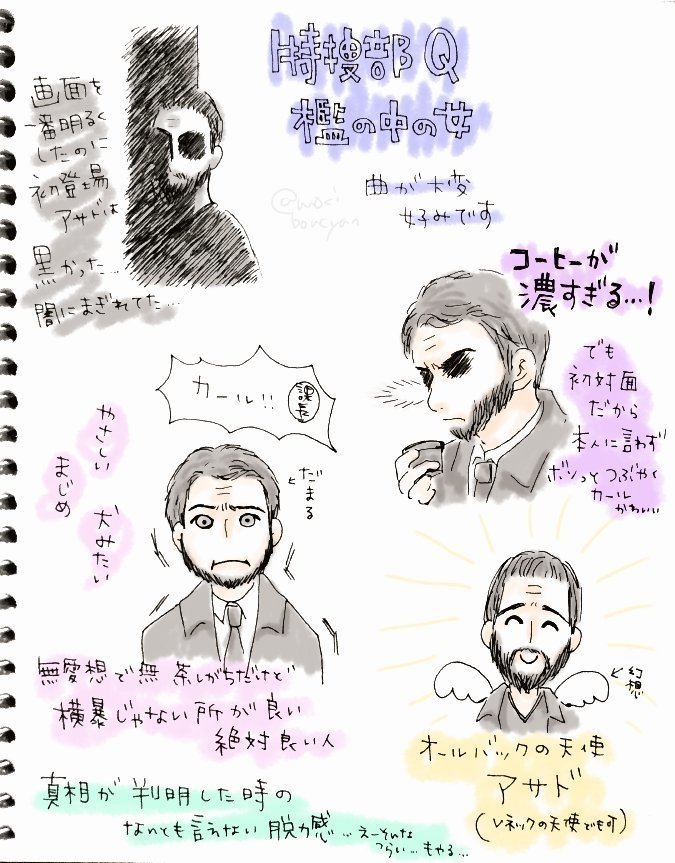 特捜部Q
檻の中の女
曲が大変
好みです
画面を
一番明るく
したのに
初登場
アサドは
黒かった…
闇にまぎれてた…
コーヒーが
濃すぎる…!
でも
初対面
だから
本人に言わず
ボソっとつぶやく
カール
かわいい
カール!! 課長
だまる
やさしい
まじめ
犬みたい
無愛想で無茶しがちだけど
横暴じゃない所が良い
絶対良い人
幻想
オールバックの天使
アサド
(Vネックの天使でも可)
真相が判明した時の
なんとも言えない脱力感…えーそんな
つらい…もやる…